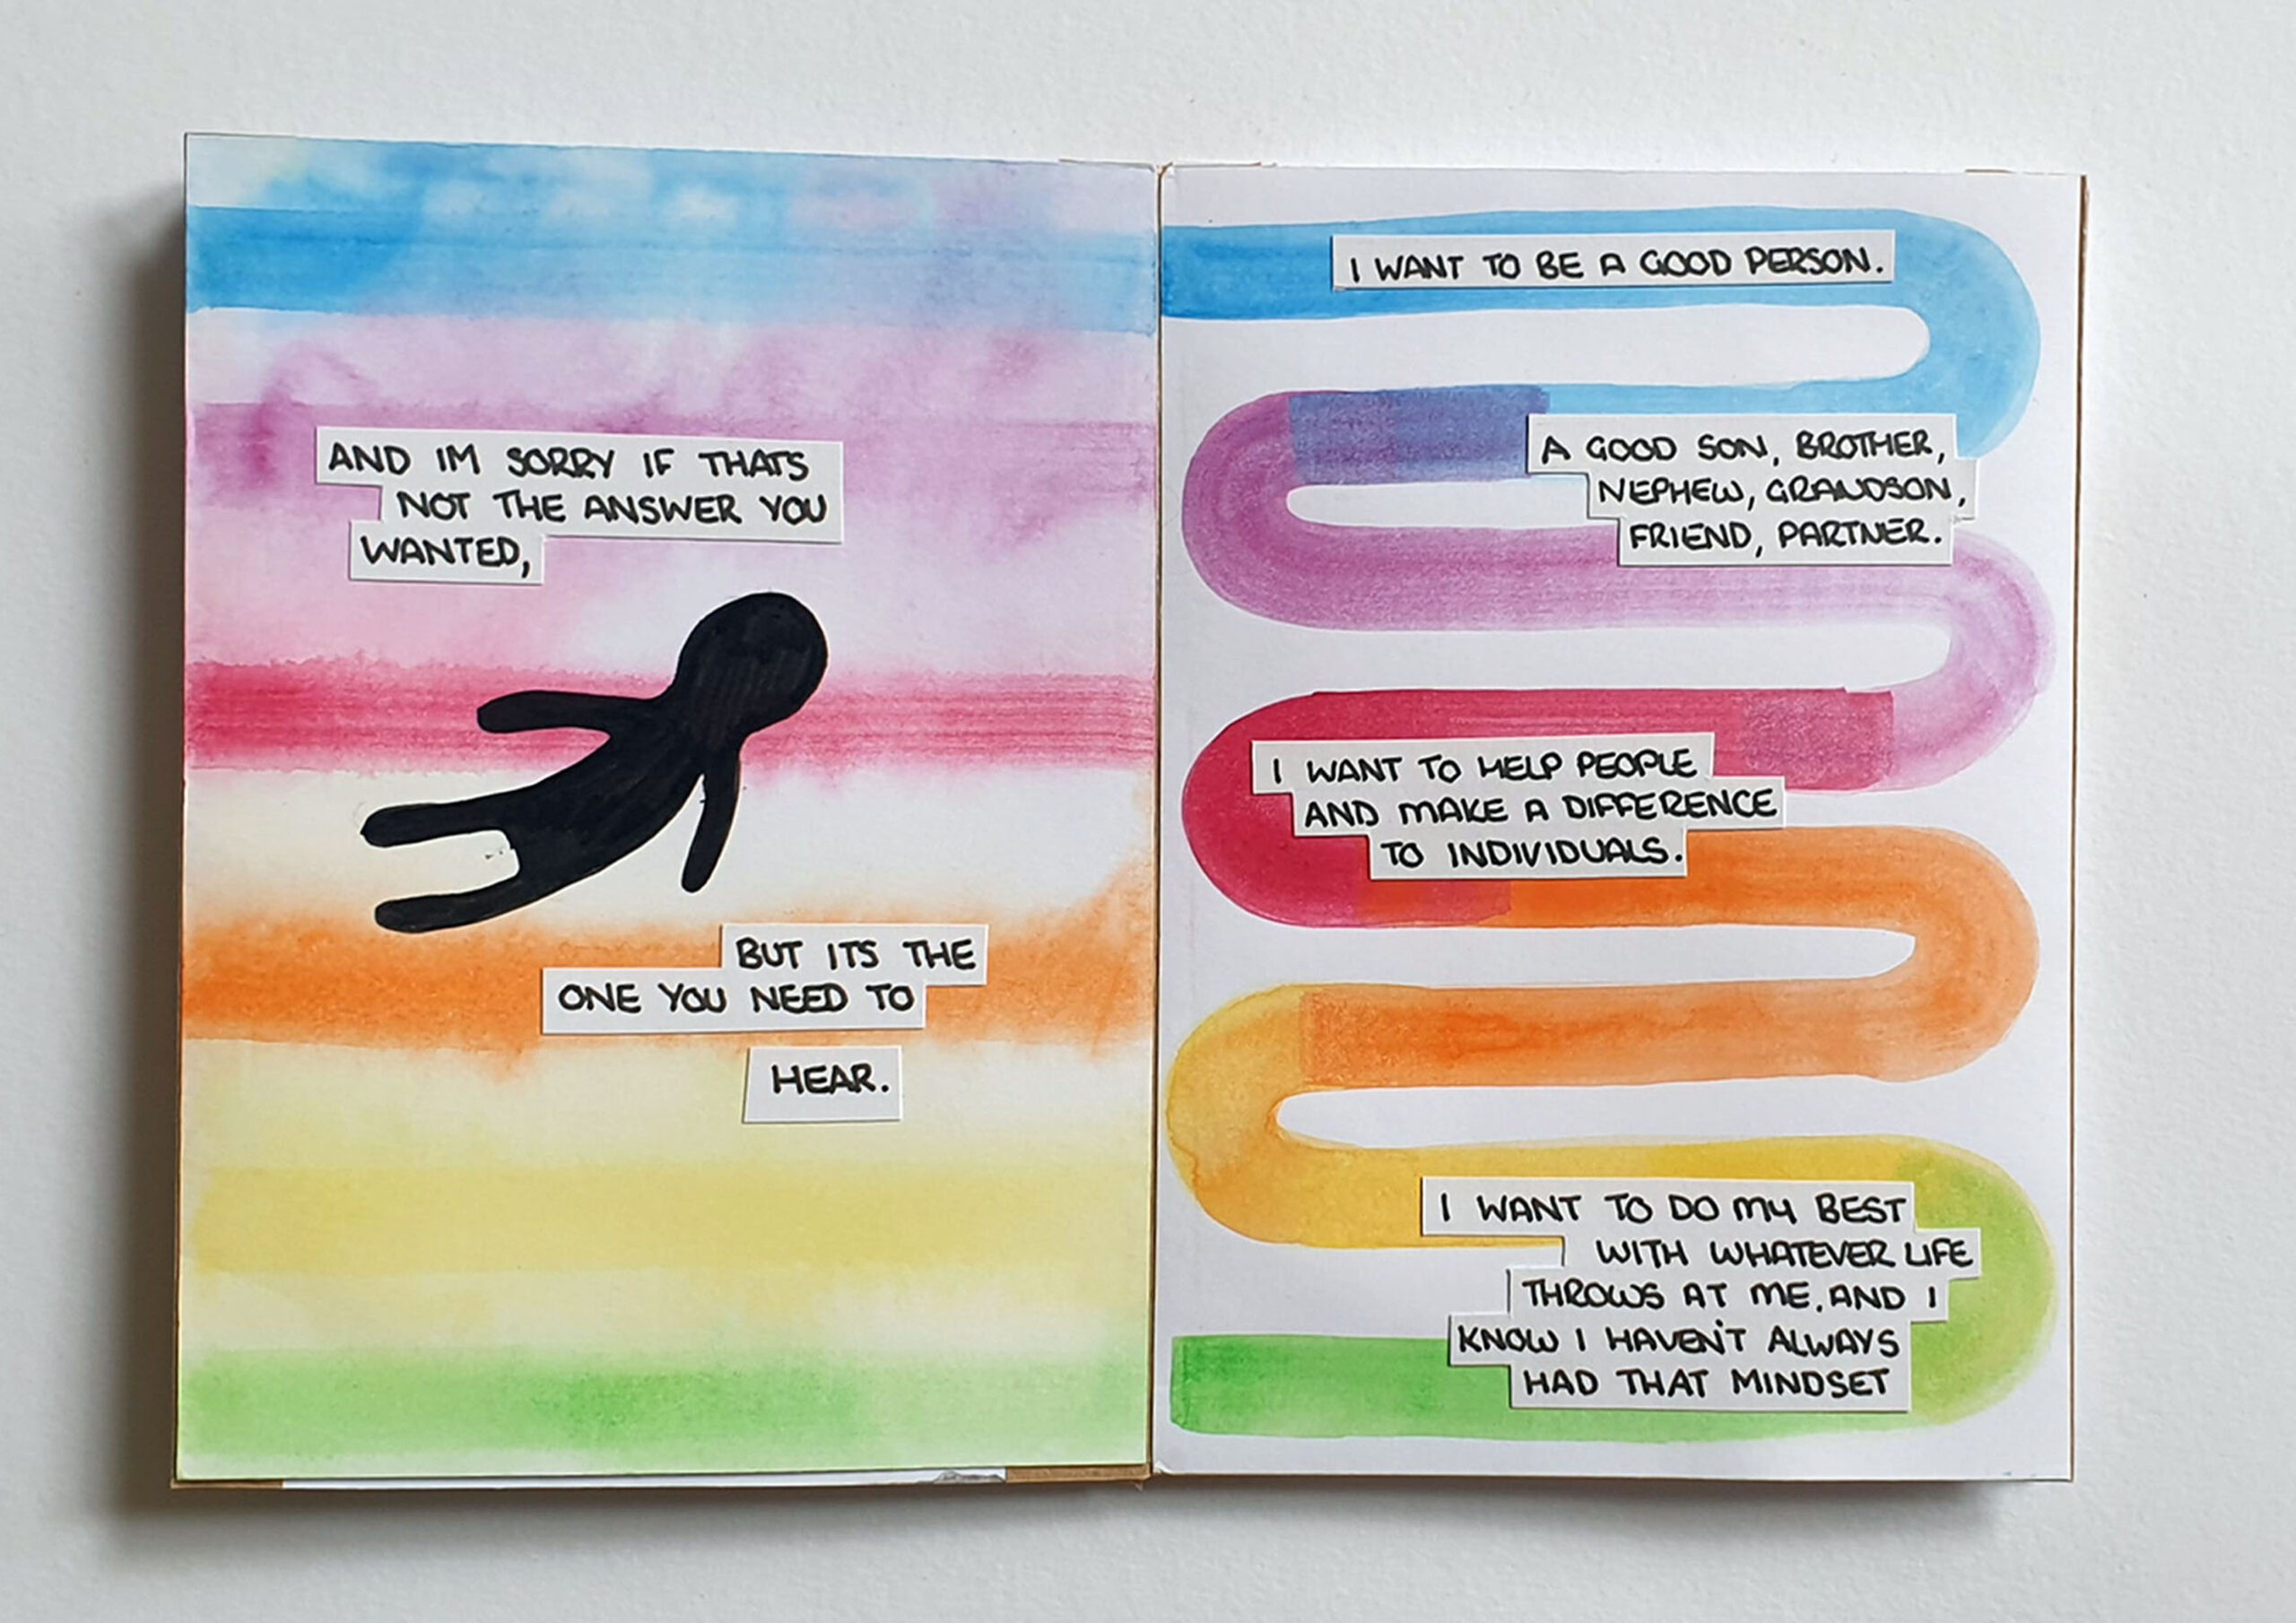 AND IM SORRY IF THATS
NOT THE ANSWER YOU
WANTED,
BUT ITS THE
ONE YOU NEED TO
HEAR.
I WANT TO BE A GOOD PERSON.
A GOOD SON, BROTHER,
NEPHEW, GRANDSON,
FRIEND, PARTNER.
I WANT TO HELP PEOPLE
AND MAKE A DIFFERENCE
TO INDIVIDUALS.
I WANT TO DO MY BEST
WITH WHATEVER LIFE
THROWS AT ME, AND I
KNOW I HAVEN'T ALWAYS
HAD THAT MINDSET